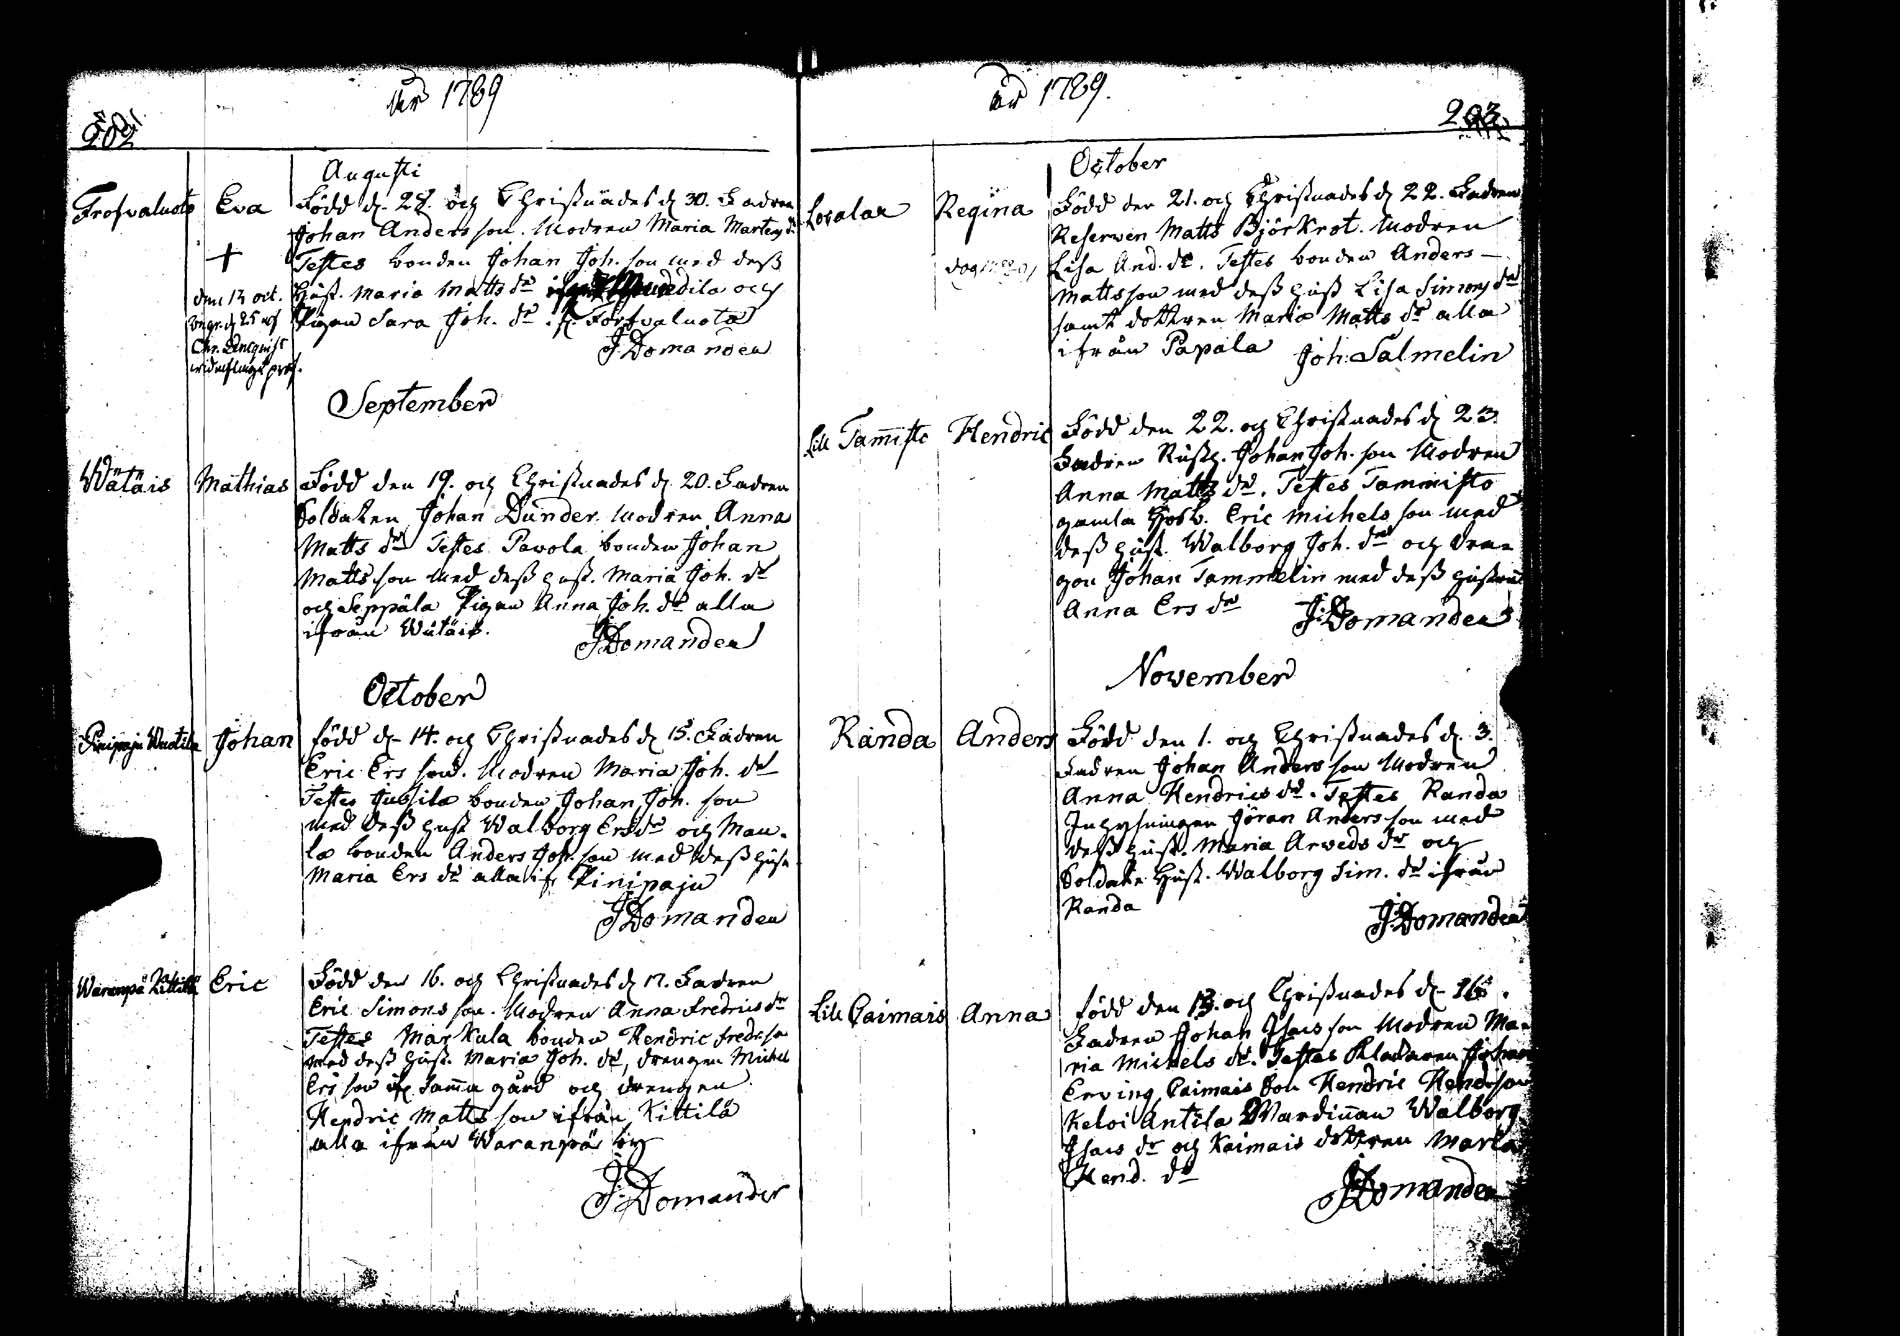 År 1789
202
Augusti
Trofvaluoto Eva Född d. 28. och Christnades d 30. Fadren
Johan Anders son. Modren Maria Martens dr
Testes bonden Johan Joh. son med dess
Hust. Maria Matts dr dila och
Pigan Sara Joh. dr. fr. Torfvaluota
J. Domander
+
den 12 oct.
September
Wätäis Mathias Född den 19. och Christnades d. 20. Fadren
Soldaten Johan Dunder. Modren Anna
Matts dr Testes Pavola bonden Johan
Matts son med dess hust. Maria Joh. dr
och Seppälä Pigan Anna Joh. dr alla
ifrån Wätäis.
J Domander
October
Pinipaju Wuotila Johan född d. 14. och Christnades d 15. Fadren
Eric Ers son. Modren Maria Joh. dr
Testes Jussila bonden Johan Joh. son
med dess hust Walborg Ers dr och Man-
la bonden Anders Joh. son med dess hust
Maria Ers dr alla ifr. Pinipaju
J Domander
Waranpä Kittilä Eric Född den 16. och Christnades d 17. Fadren
Eric Simons son. Modren Anna Fredrics dr
Testes Markula bonden Hendric Fredr. son
med dess hust. Maria Joh. dr, drengen Michel
Ers son ifr samma gård och drengen
Hendric Matts son ifrån Kittilä
alla ifrån Waranpä by
J: Domander
År 1789.
203
October
Loxalax Regina Född den 21. och Christnades d 22. Fadren
Reserven Matts Björkrot. Modren
Lisa And. dr. Testes bonden Anders
Matts son med dess hust Lisa Simons dr
samt dottren Maria Matts dr alla
ifrån Papala Joh: Salmelin
Lill Tammisto Hendric Född den 22. och Christnades d 23.
Fadren Rusth. Johan Joh. son Modren
Anna Matts dr. Testes Tammisto
gamla Hosb. Eric Michels son med
dess hust. Walborg Joh. dr och Dra-
gon Johan Tammelin med dess hustru
Anna Ers dr J: Domander
November
Randa Anders Född den 1. och Christnades d. 3.
Fadren Johan Anders son Modren
Anna Hendrics dr. Testes Randa
Inhysningen Jöran Anders son med
dess hust. Maria Arweds dr och
Soldate Hust. Walborg Sim. dr ifrån
Randa
J. Domander
Lill Caimais Anna född den 13. och Christnades d. 16.
Fadren Johan Isacs son Modren Ma-
ria Michels dr. Testes Johan
Erving, Caimais Bon Hendric Hend. son
Keloi Antila Wärdinnan Walborg
Isacs dr och Kaimais dottren Maria
Hend. dr
J Domander